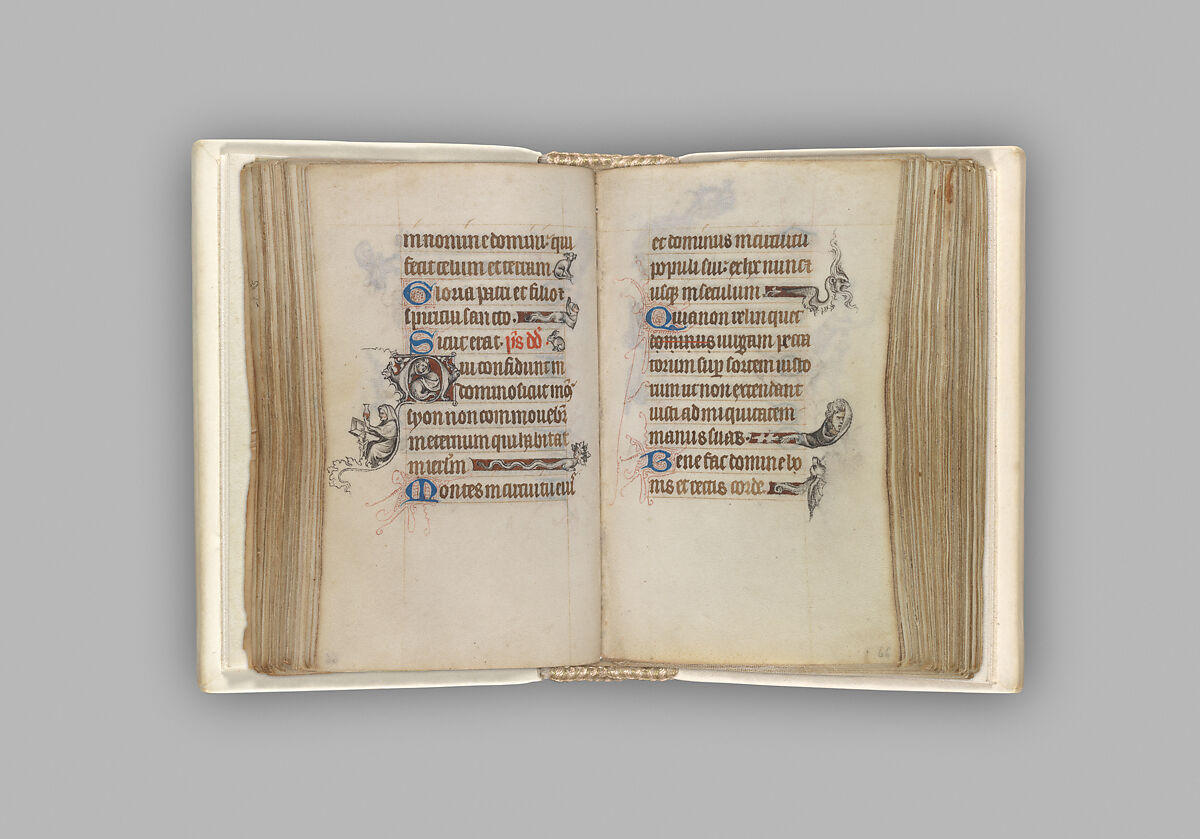 in nomine domini· qui
fecit celum et terram
Gloria patri et filio et
spiritui sancto·
Sicut erat· p̄s dd̄
Qui confidunt in
domino sicut mōs
syon non commouebit̄
in eternum qui habitat
in ierl̄m
Montes in circuitu eiu
et dominus in circuitu
populi sui· ex hr nunc et
usq̄ in seculum
Quia non relinquet
dominus uirgam pecca
torum sup̄ sortem iusto
rum ut non extendant
iusti ad iniquitatem
manus suas·
Bene fac domine bo
nis et rectis corde·
66